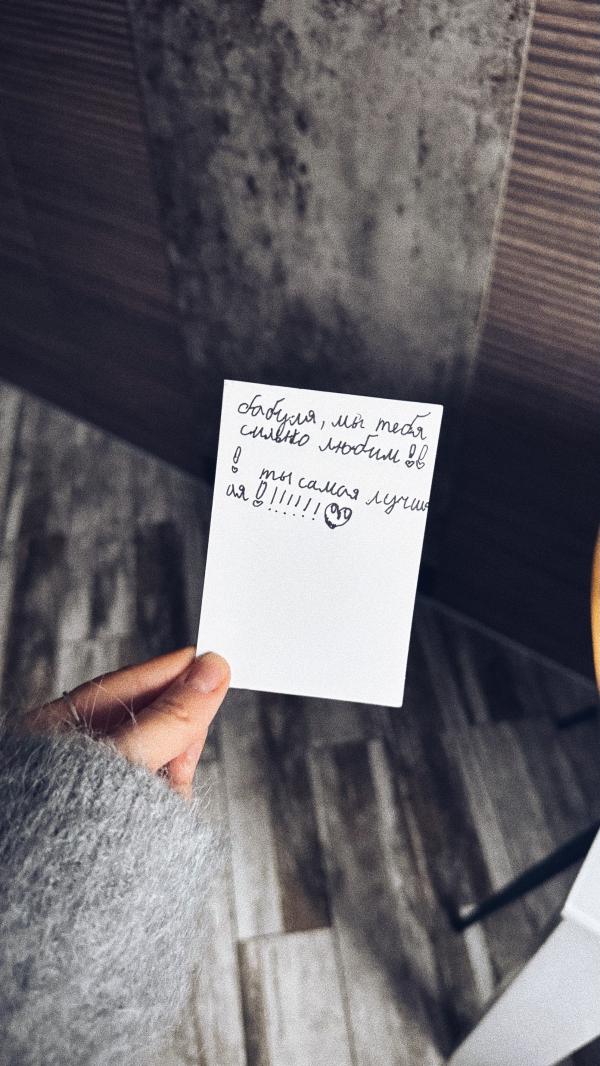 бабуля, мы тебя
сильно любим!!
!
ты самая лучш
ая!!!!!!!